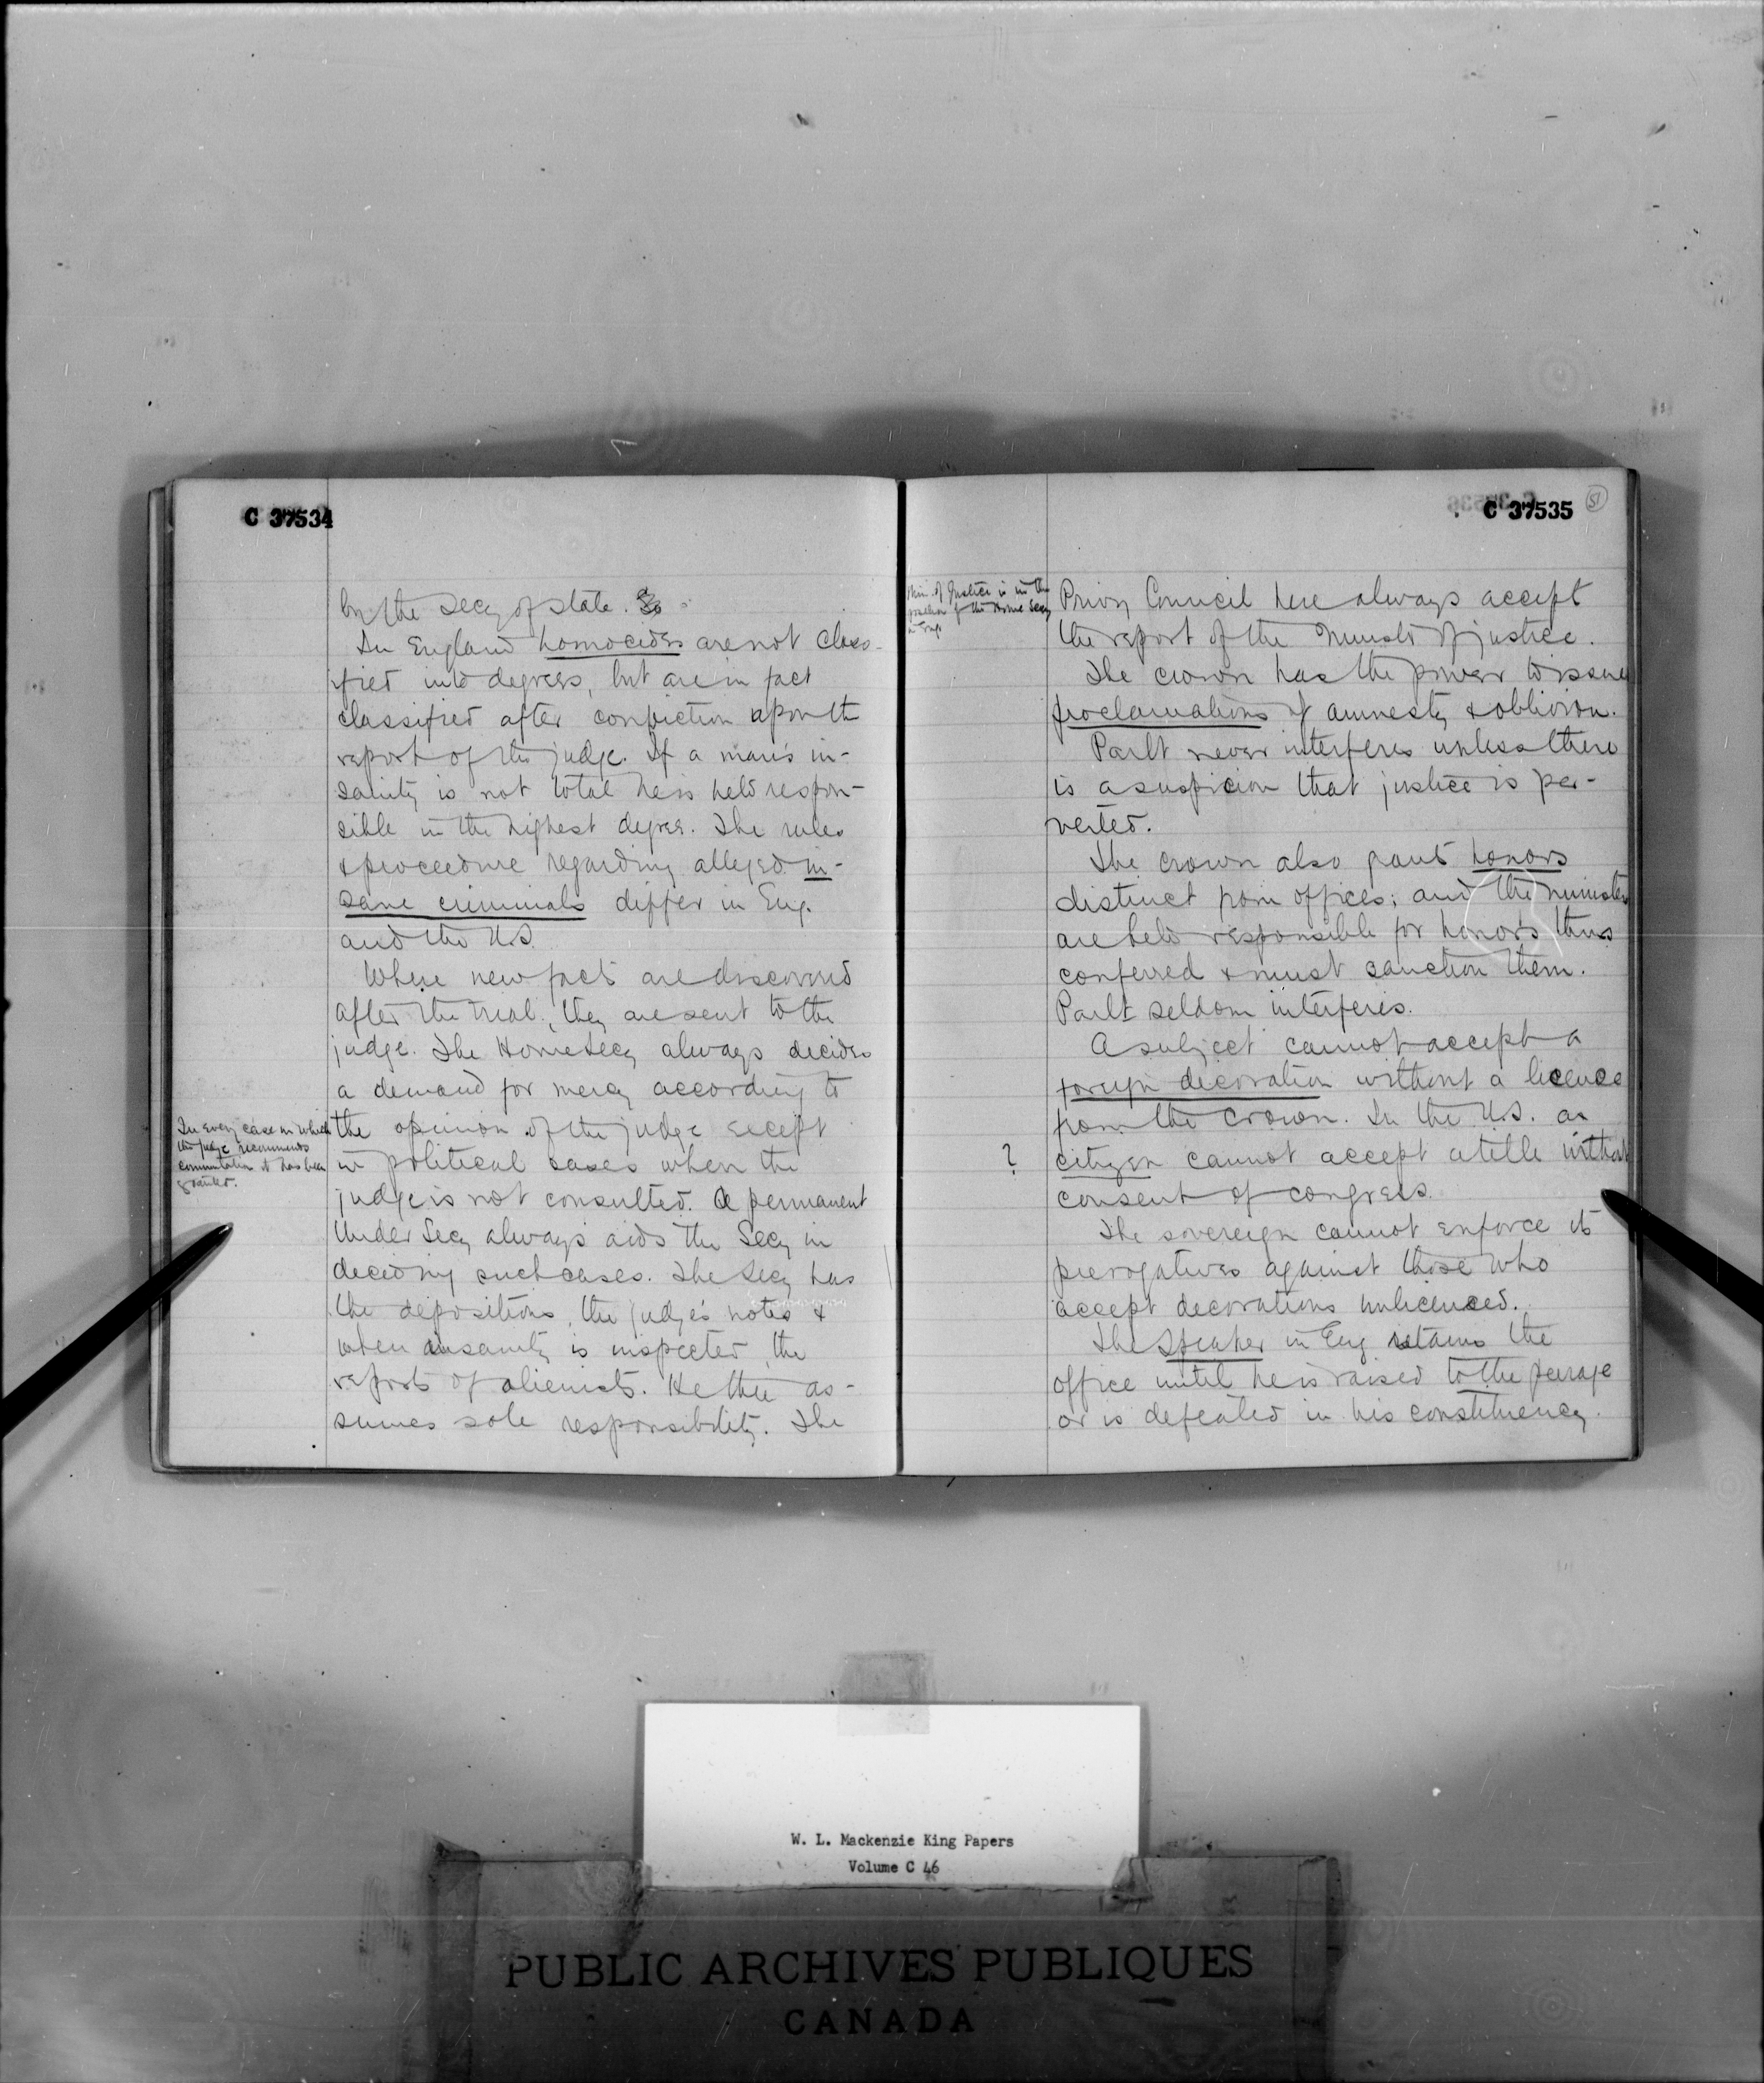 C 37534
by the Secy of state. So
In England homocides are not class-
ified into degrees, but are in fact
classified after conviction upon the
report of the judge. If a man's in-
sanity is not total he is held respon-
sible in the highest degree. The rules
& proceedure regarding alleged in-
sane criminals differ in Eng.
and the U.S.
Where new facts are discovered
after the trial, they are sent to the
judge. The Home Secy always decides
a demand for mercy according to
the opinion of the judge except
in political cases when the
judge is not consulted. A permanent
Under Secy always aids the Secy in
deciding such cases. The Secy has
the depositions, the judge's notes &
when insanity is inspected, the
reports of alienists. He then as-
sumes sole responsibility. The
In every case in which
the judge recommends
commutation it has been
granted.
C 37535
51
Min. of Justice is in the
position of the Home Secy
in Eng.
Privy Council here always accept
the report of the Minister of justice.
The crown has the power to issue
proclamations of amnesty & oblivion.
Parlt never interferes unless there
is a suspicion that justice is per-
verted.
The crown also grants honors
distinct from offices; and the ministers
are held responsible for honors thus
conferred & must sanction them.
Parlt seldom interferes.
A subject cannot accept a
foreign decoration without a licence
from the crown. In the U.S. a
? citizen cannot accept a title without
consent of congress.
The sovereign cannot enforce its
prerogatives against those who
accept decorations unlicenced.
The Speaker in Eng retains the
office until he is raised to the peerage
or is defeated in his constituency.
W. L. Mackenzie King Papers
Volume C 46
PUBLIC ARCHIVES PUBLIQUES
CANADA